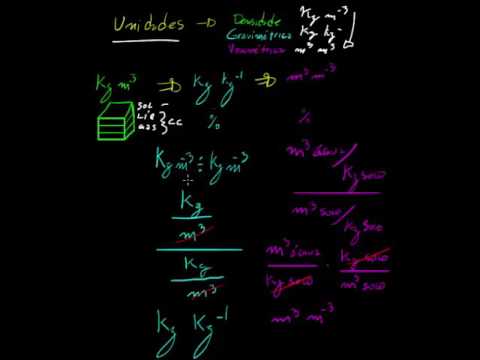 Unidades → Densidade Kg m⁻³
Gravimétrica Kg kg⁻
Volumétrica m³ m⁻³
Kg m³ ⇒ Kg kg⁻¹ ⇒ m³ m⁻³
SOL –
LIQ
GAS } CC
% %
Kg m⁻³ ÷ Kg m⁻³
m³ água / Kg solo
m³ solo / Kg solo
Kg
m³
Kg
m³
m³ água / Kg solo · Kg solo / m³ solo
Kg Kg⁻¹
m³ m⁻³